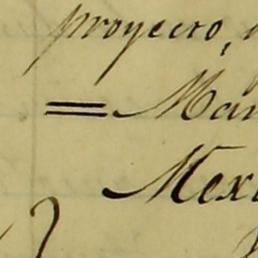 proyecto,
= Man
Mexi